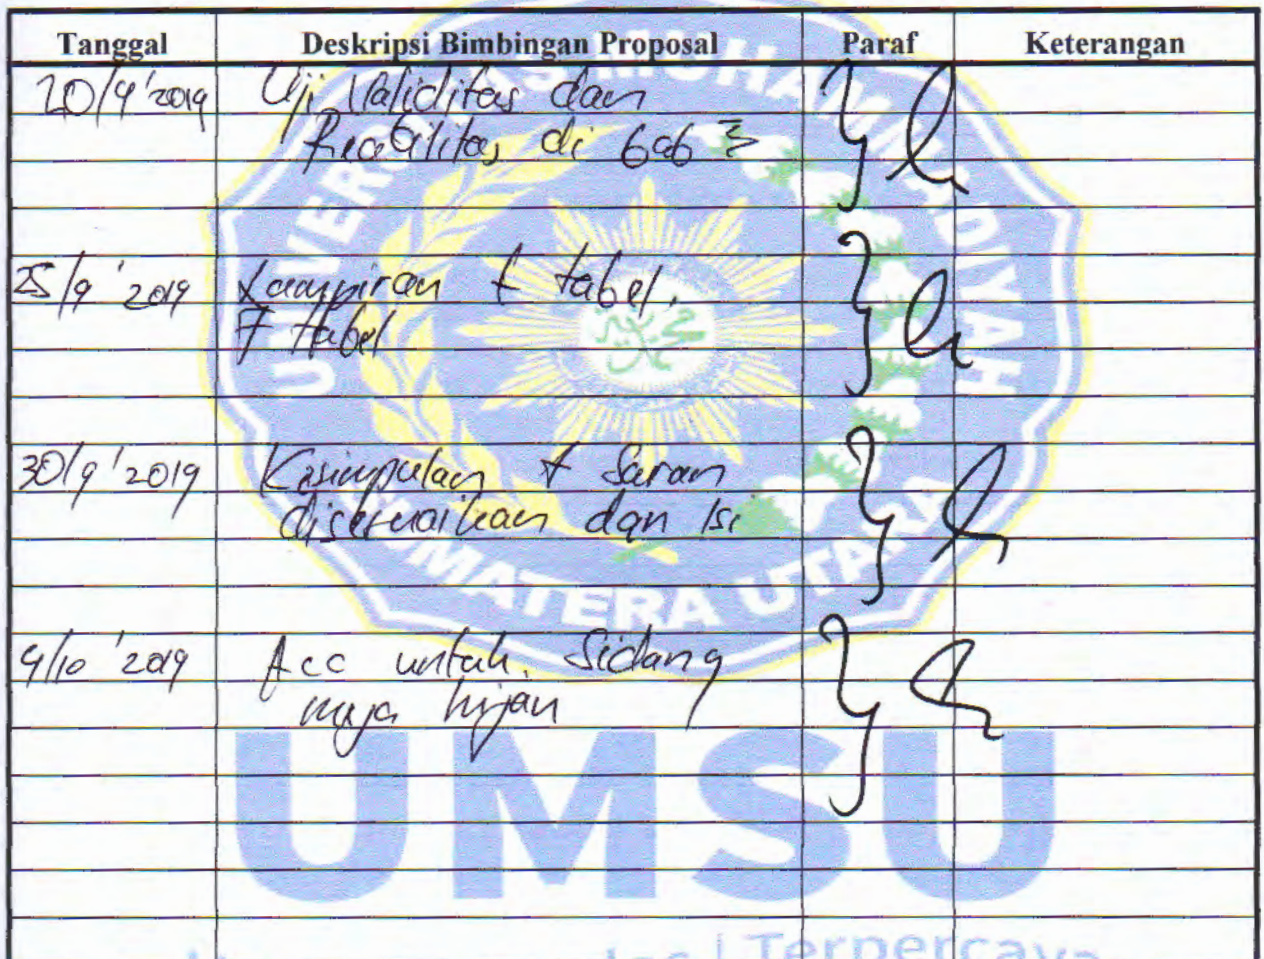 Tanggal Deskripsi Bimbingan Proposal Paraf Keterangan
20/9 '2019 Uji Validitas dan
Reabilitas di bab 3
25/9 '2019 Lampiran t tabel,
F tabel
30/9 '2019 Kesimpulan + Saran
disesuaikan dan Isi
9/10 '2019 Acc untuk Sidang
meja hijau
UNIVERSITAS MUHAMMADIYAH
SUMATERA UTARA
UMSU
| Terpercaya